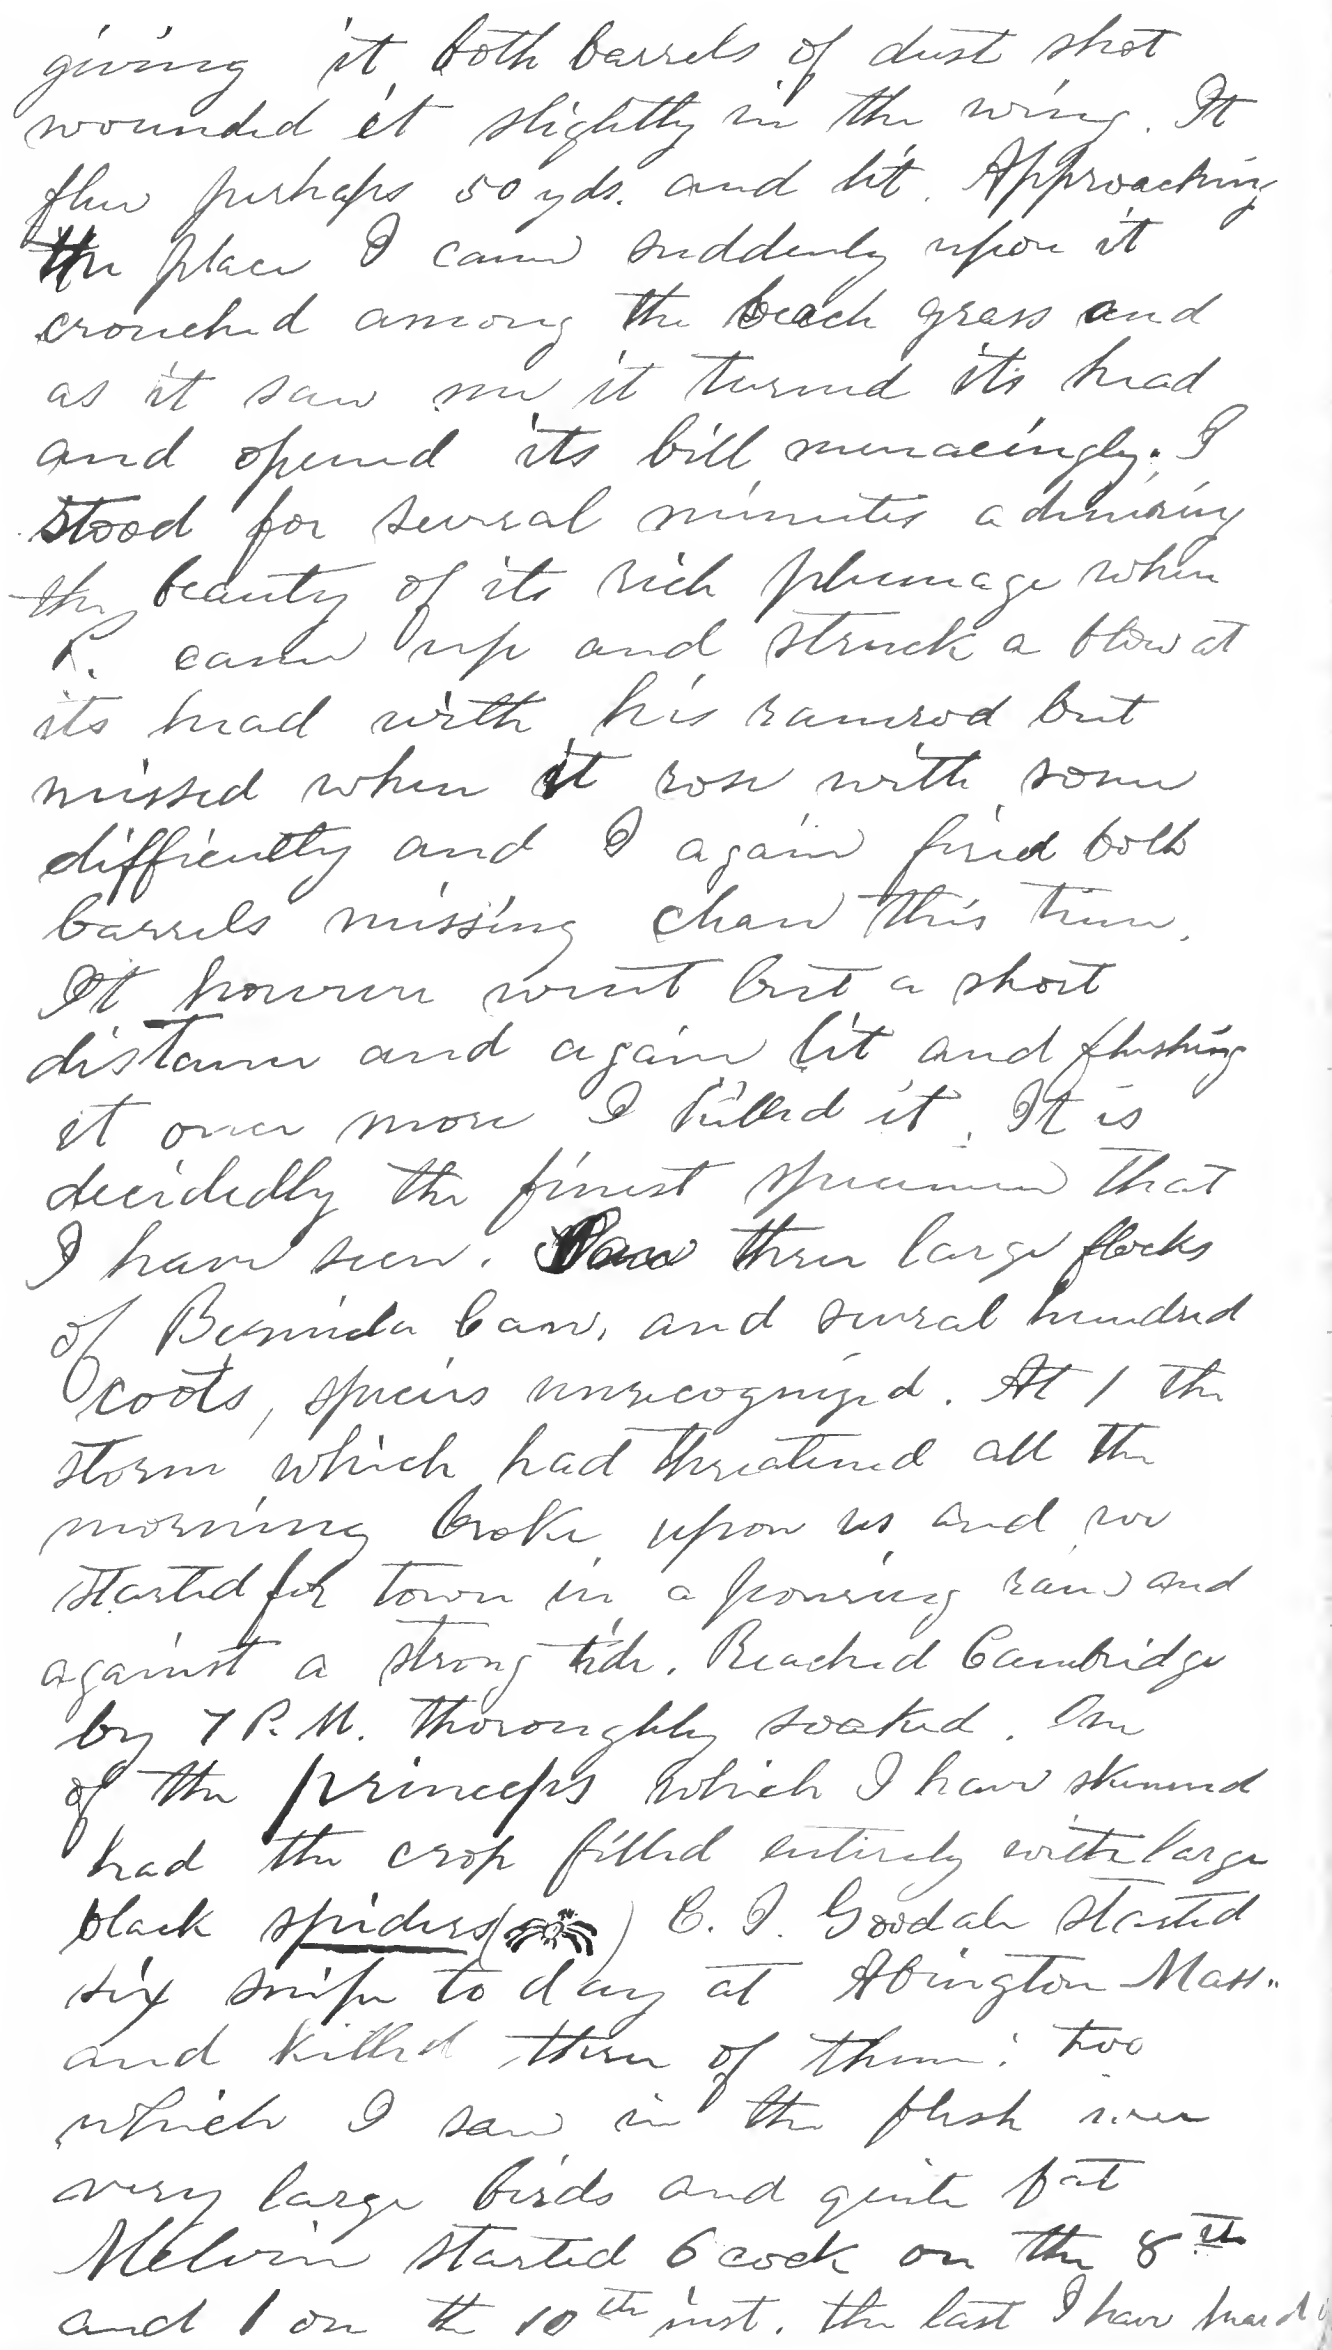 giving it both barrels of dust shot
wounded it slightly in the wing. It
flew perhaps 50 yds. and lit. Approaching
the place I came suddenly upon it
crouched among the beach grass and
as it saw me it turned its head
and opened its bill menacingly. I
stood for several minutes admiring
the beauty of its rich plumage when
R. came up and struck a blow at
its head with his ramrod but
missed when it rose with some
difficulty and I again fired both
barrels missing clean this time.
It however went but a short
distance and again lit and flushing
it once more I killed it. It is
decidedly the finest specimen that
I have seen. Saw three large flocks
of Bernicla Can. and several hundred
coots, species unrecognized. At 1 the
storm which had threatened all the
morning broke upon us and we
started for town in a pouring rain and
against a strong tide. Reached Cambridge
by 7 P.M. thoroughly soaked. One
of the princeps which I have skinned
had the crop filled entirely with large
black spiders ( ) C. I. Goodale started
six snipe to day at Abington Mass.
and killed three of them: two
which I saw in the flesh were
very large birds and quite fat
Melvin started 6 cock on the 8th
and 1 on the 10th inst. the last I have heard